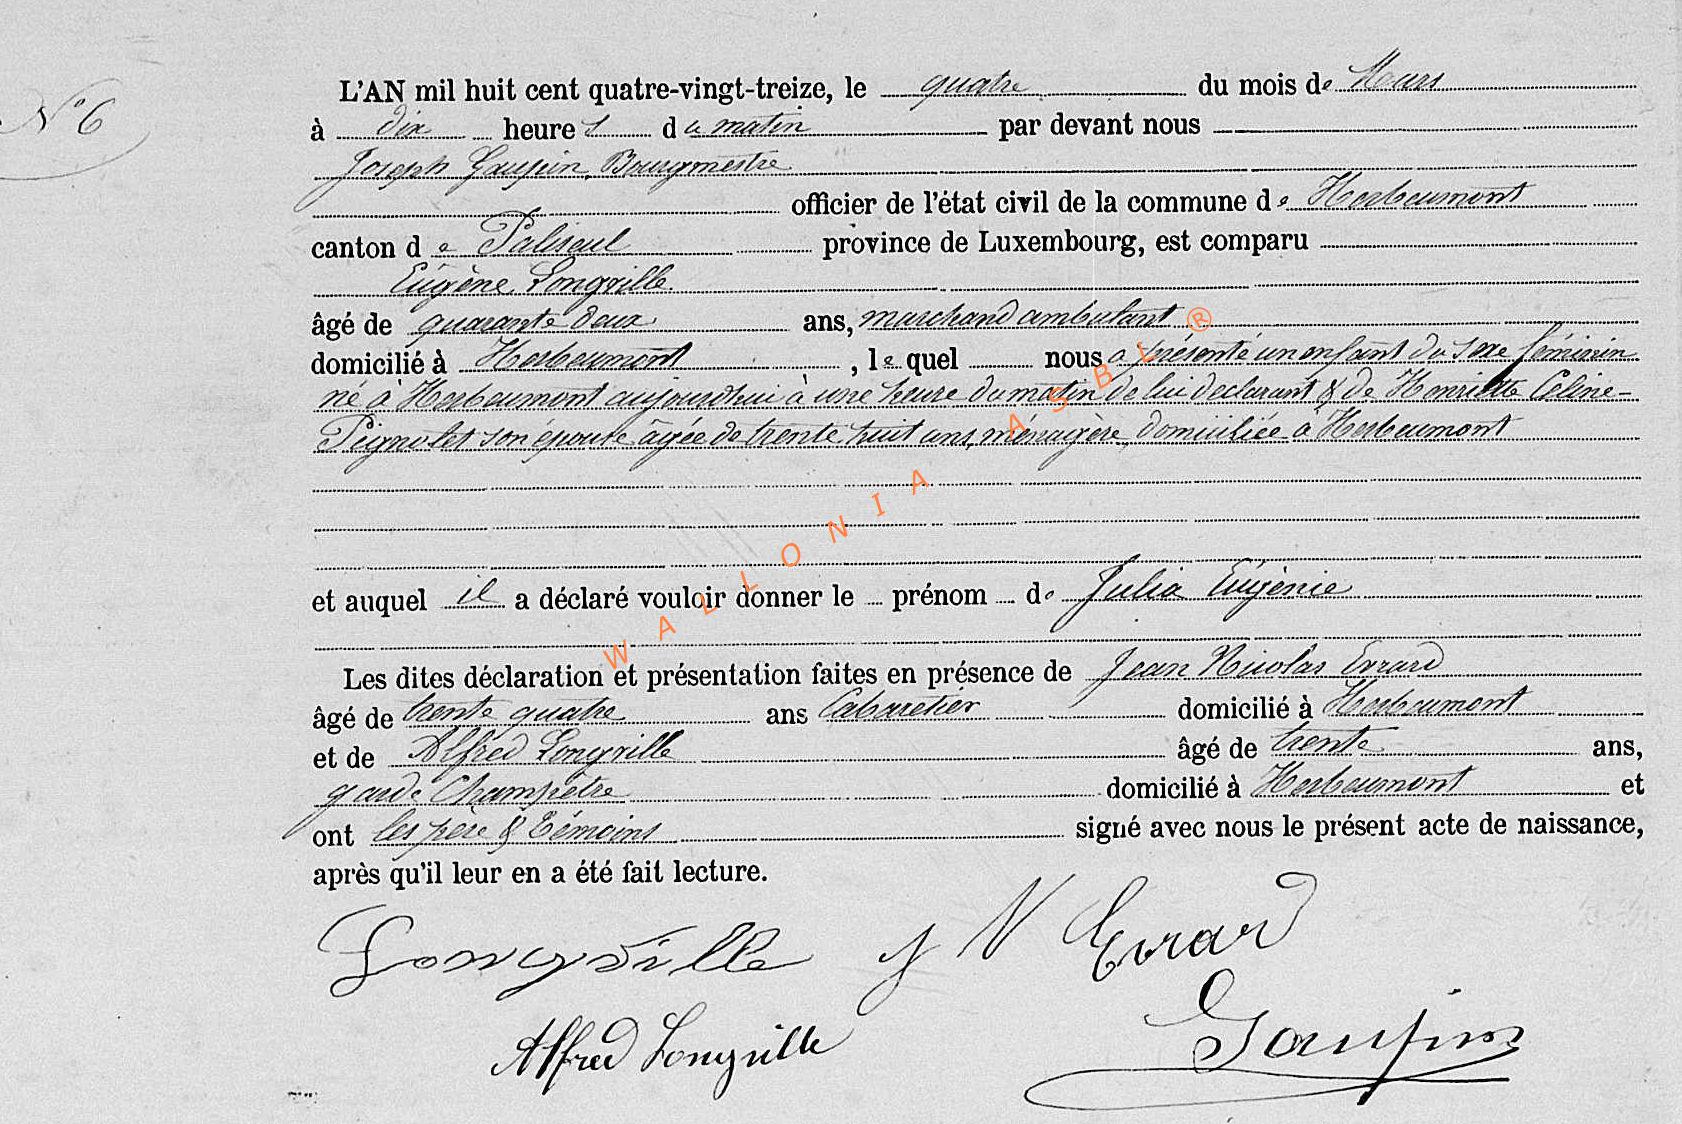 N° 6
L'AN mil huit cent quatre-vingt-treize, le quatre du mois de Mars
à dix heures du matin par devant nous
Joseph Gaupin, Bourgmestre
officier de l'état civil de la commune de Herbeumont
canton de Paliseul province de Luxembourg, est comparu
Eugène Longville
âgé de quarante deux ans, marchand ambulant
domicilié à Herbeumont, lequel nous a présenté un enfant du sexe féminin
né à Herbeumont aujourdhui à une heure du matin de lui déclarant & de Henriette Celine
Peignolet son épouse âgée de trente huit ans, ménagère, domiciliée à Herbeumont
et auquel il a déclaré vouloir donner le prénom de Julia Eugénie
Les dites déclaration et présentation faites en présence de Jean Nicolas Evrard
âgé de trente quatre ans Cabaretier domicilié à Herbeumont
et de Alfred Longville âgé de trente ans,
garde Champêtre domicilié à Herbeumont et
ont les père & témoins signé avec nous le présent acte de naissance,
après qu'il leur en a été fait lecture.
Longville J N Evrard
Alfred Longville Gaupin
WALLONIA ASBL ®